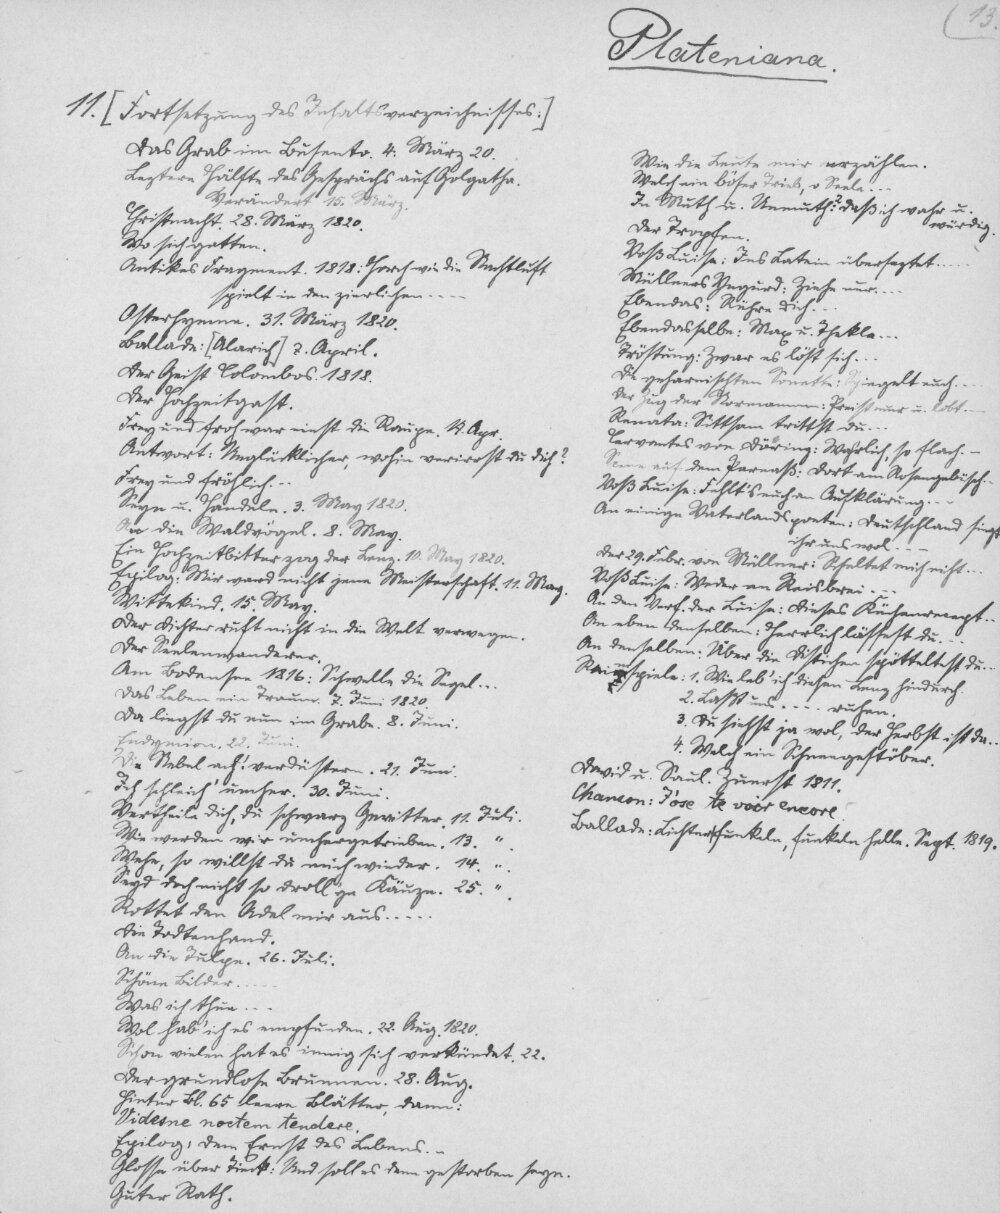 13.
Plateniana.
11. [Fortsetzung des Inhaltsverzeichnisses:]
Das Grab im Busento. 4. März 20.
Leztere Hälfte des Gesprächs auf Golgatha.
Verändert 15. März.
Christnacht. 28. März 1820.
Wo sich gatten.
Antikes Fragment. 1818: Horch wie die Nachtluft
spielt in den zierlichen ----
Osterhymne. 31. März 1820.
Ballade: [Alarich] 2. April.
Der Geist Colombos. 1818.
Der Hochzeitgast.
Frey und froh war einst die Raupe. 12. Apr.
Antwort: Unglücklicher, wohin verirrst du dich?
Frey und fröhlich...
Seyn u. Handeln. 3. May 1820.
An die Waldvögel. 8. May.
Ein Hochzeitbitter zog der Lenz. 10. May 1820.
Epilog: Mir ward nicht jene Meisterschaft. 11. May.
Wittekind. 15. May.
Der Dichter ruft nicht in die Welt verwegen.
Der Seelenwanderer.
Am Bodensee 1816: Schwelle die Segel...
Das Leben ein Traum. 7. Juni 1820.
Da liegst du nun im Grabe. 8. Juni.
Endymion. 22. Juni.
Die Nebel ach! verdüstern. 21. Juni.
Ich schleich' umher. 30. Juni.
Vertheile dich, du schwarz Gewitter. 11. Juli.
Wie werden wir umhergetrieben. 13. ".
Wehe, so willst du mich wieder. 14. ".
Seyd doch nicht so droll'ge Käuze. 25. ".
Rottet den Adel mir aus.....
Die Todtenhand.
An die Tulpe. 26. Juli.
Schöne Bilder.....
Was ich thue...
Wol hab' ich es empfunden. 22. Aug. 1820.
Schon vielen hat es innig sich verkündet. 22.
Der grundlose Brunnen. 28. Aug.
Hinter Bl. 65 leere Blätter, dann:
Videsne noctem tendere.
Epilog: dem Ernst des Lebens..
Glosse über Tieck: Und soll es denn gestorben seyn.
Guter Rath.
Wie die Leute mir erzählen.
Welch ein böser Trieb, o Seele...
In Muth u. Unmuth: daß ich wahr u.
würdig.
Der Tropfen.
Voß Luise: Ins Latein übersetztet....
Müllners Yngurd: Ziehe nur....
Ebendas: Rühre dich...
Ebendasselbe: Max u. Thekla...
Tröstung: Zwar es löst sich...
Die geharnischten Sonette: Spiegelt euch...
Der Zug der Normannen: Preist nur u. lobt...
Renata: Sittsam trittst du...
Cervantes von Döring: Wahrlich, so flach.-
Scene auf dem Parnaß: Dort am Rosengebüsch..
Voß Luise: Fehlt's euch an Aufklärung...
An einige Vaterlandspoeten: Deutschland singt
ihr uns wol....
Der 29. Febr. von Müllner: Scheltet mich nicht...
Voß Luise: Weder an Reisbrei...
An den Verf. der Luise: Dieses Küchenrezept..
An eben denselben: Herrlich lässest du...
An denselben: Über die Distichen spötteltest du..
Reimspiele: 1. Wie leb' ich diesen Lenz hindurch.
2. Laßt uns.... ruhen.
3. Du siehst ja wol, der Herbst ist da..
4. Welch ein Schneegestöber.
David u. Saul. Zuerst 1811.
Chanson: J'ose te voir encore.
Ballade: Lichter funkeln, funkeln helle. Sept. 1819.